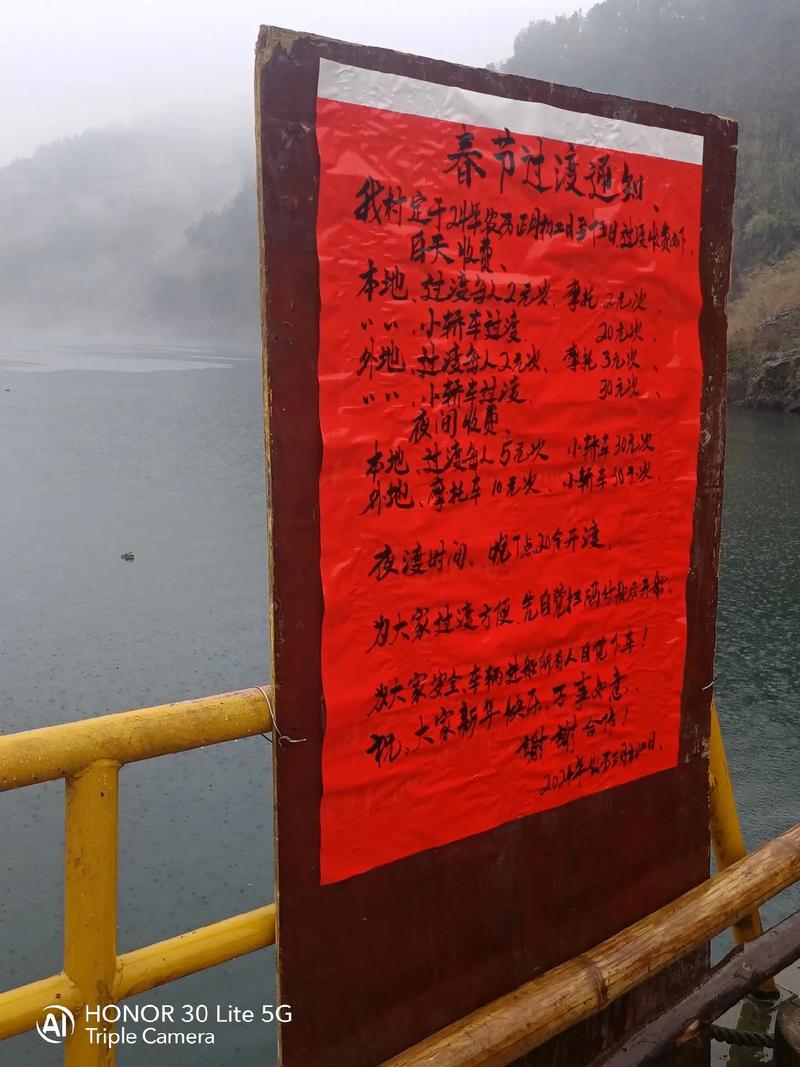 春节过渡通知、
我村定于24年农历正月初二日至十五日过渡收费如下、
白天收费、
本地、过渡每人2元次、摩托2元次、
〃〃、小轿车过渡、20元次、
外地、过渡每人2元次、摩托3元次、
〃〃、小轿车过渡、30元次、
夜间收费、
本地、过渡每人5元次 小轿车30元次、
外地、摩托车10元次、小轿车50元次、
夜渡时间、晚7点30分开渡、
为大家过渡方便、先自觉扫码付款后开船、
为大家安全、车辆进船所有人自觉下车！
祝：大家新年快乐、万事如意、
谢谢合作！
2024年
HONOR 30 Lite 5G
Triple Camera
AI